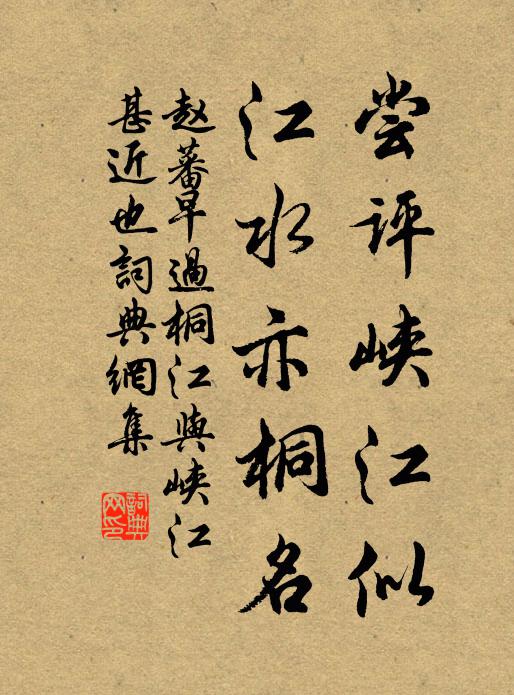 尝评峡江似
江水亦桐名
赵蕃早過桐江與峡江
甚近也詞典網集
詞典
网印